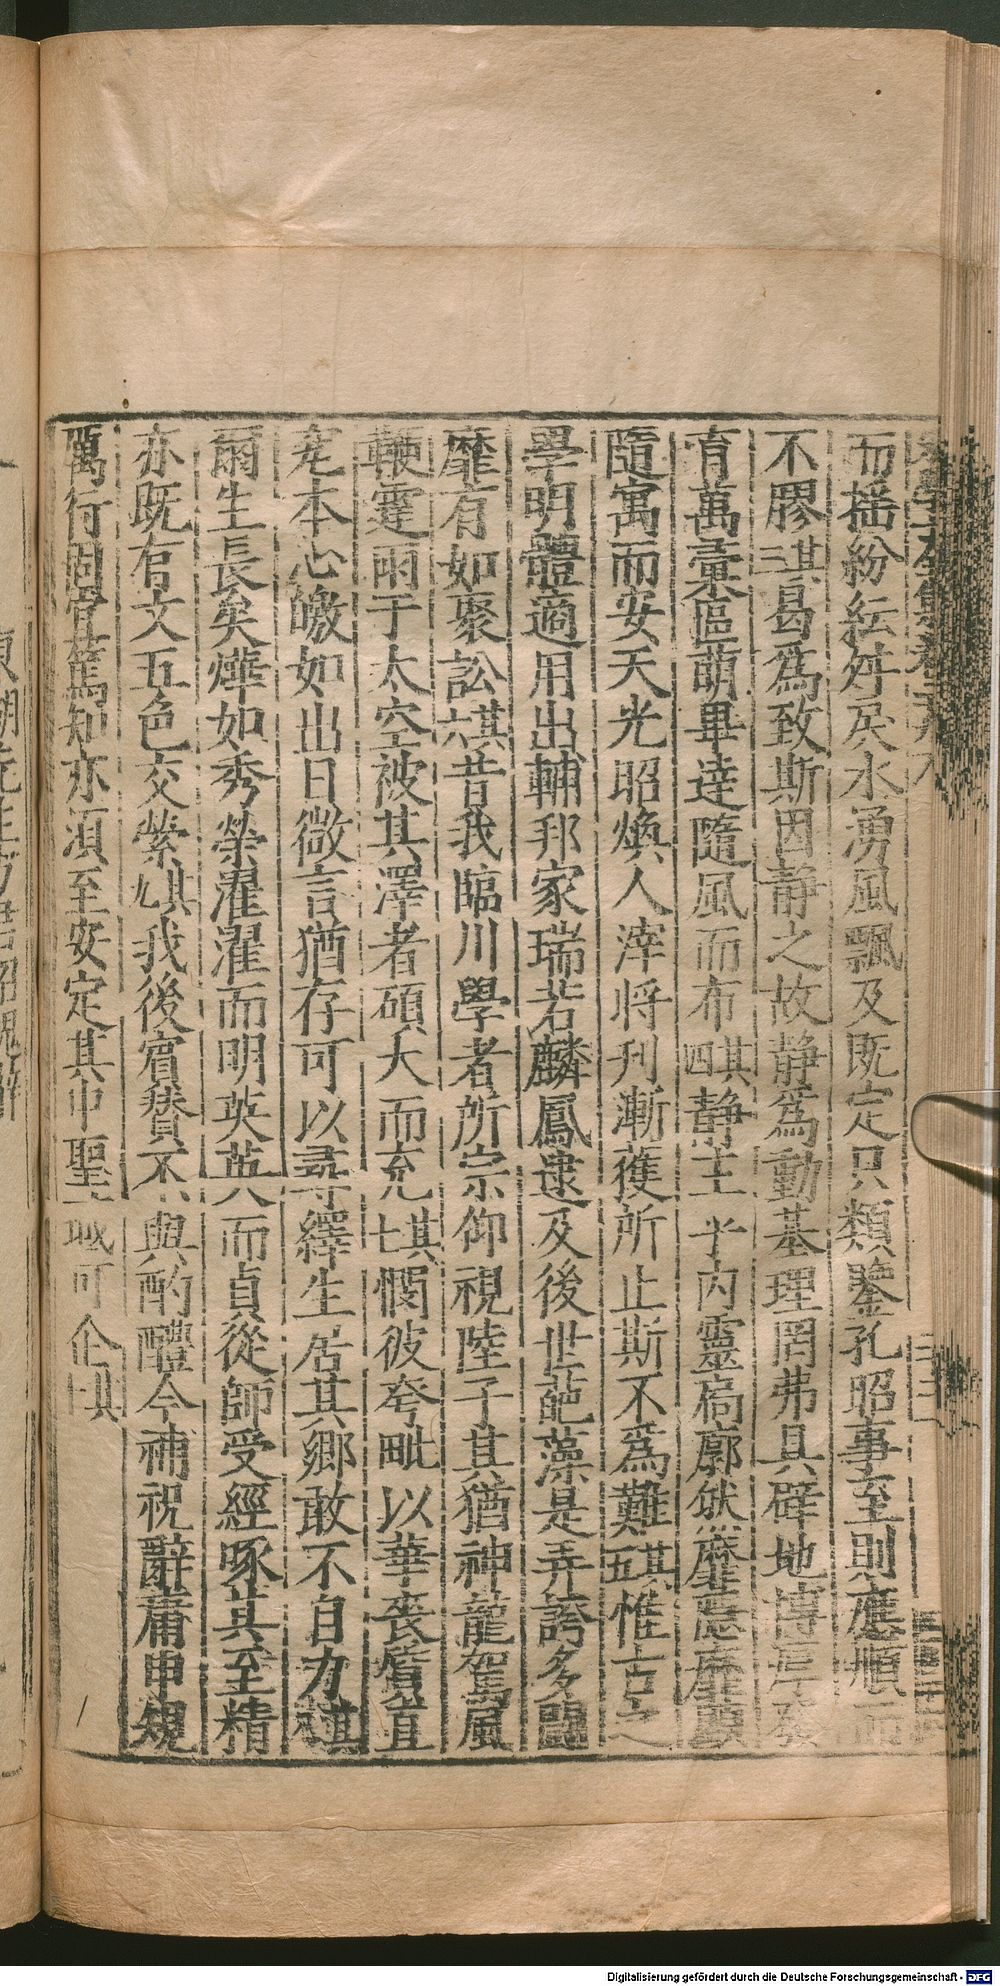 而搖紛紜舛戾水湧風飄及既定只類鑒孔昭事至則應順而
不膠其三曷爲致斯因静之故静爲動基理罔弗具辟地博厚發
育萬彙區萌畢達隨風而布其四静主乎内靈扄廓然靡慝靡顗
隨寓而安天光昭焕人滓將刋漸獲所止斯不爲難其五惟古之
學明體適用出輔邦家瑞若麟鳳逮及後世葩藻是弄誇多鬪
靡有如聚訟其六昔我臨川學者所宗仰視陸子其猶神龍駕風
鞭霆雨于太空被其澤者碩大而充其七憫彼夸毗以華喪質直
究本心皦如出日微言猶存可以尋繹生居其鄉敢不自力其八
爾生長矣燁如秀榮濯濯而明英英而貞從師受經啄其至精
亦既有文五色交縈其九我後賓賛不與酌醴今補祝辭庸申規
萬行固宜篤知亦須至安定其中聖域可企其十
Digitalisierung gefördert durch die Deutsche Forschungsgemeinschaft - DFG